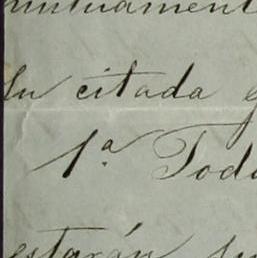 mutuament
su citada
1ª Tod
estarán su